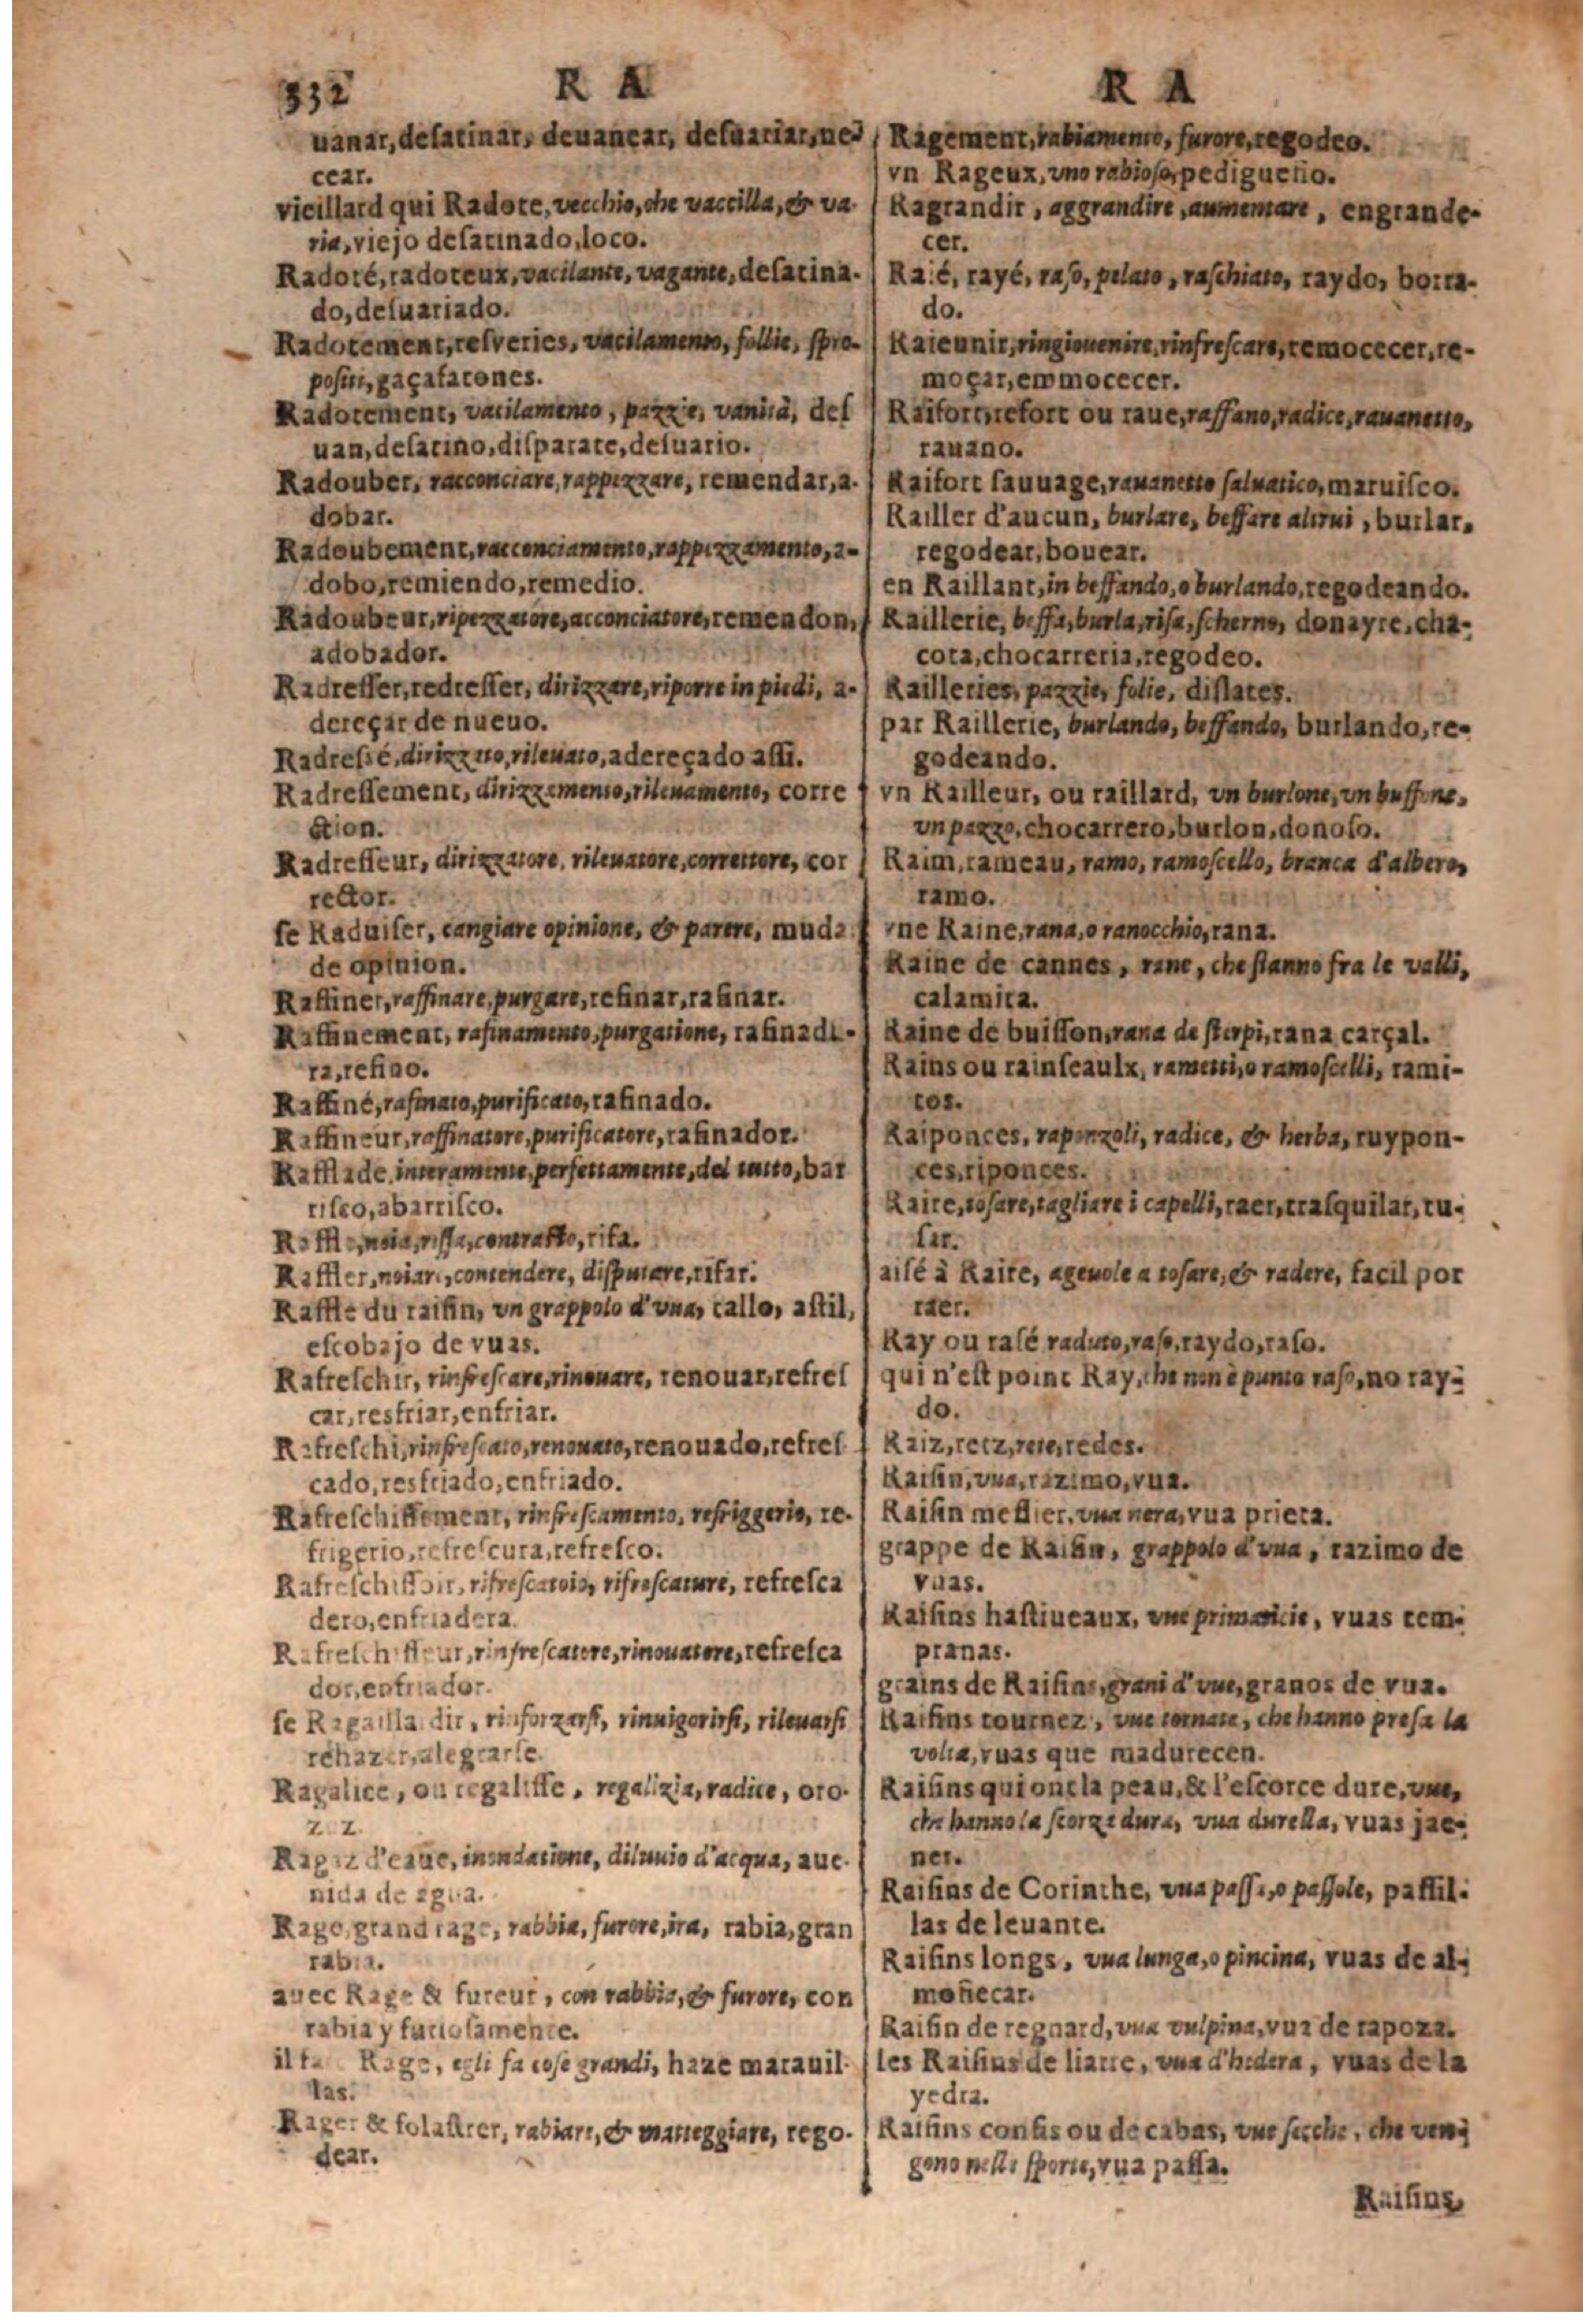 332 R A R A
uanar, deſatinar, deuanear, deſuariar, ne-
cear.
vieillard qui Radote, vecchio, che vaccilla, & va-
ria, viejo deſatinado, loco.
Radoté, radoteux, vacilante, vagante, deſatina-
do, deſuariado.
Radotement, reſveries, vacilamento, follie, ſpro-
poſiti, gaçafatones.
Radotement, vacilamento, pazzie, vanità, deſ
uan, deſatino, diſparate, deſuario.
Radouber, racconciare, rappezzare, remendar, a-
dobar.
Radoubement, racconciamento, rappezzamento, a-
dobo, remiendo, remedio.
Radoubeur, ripezzatore, acconciatore, remendon,
adobador.
Radreſſer, redreſſer, dirizzare, riporre in piedi, a-
dereçar de nueuo.
Radreſſé, dirizzato, rileuato, adereçado aſſi.
Radreſſement, dirizzamento, rileuamento, corre
ction.
Radreſſeur, dirizzatore, rileuatore, correttore, cor
rector.
ſe Raduiſer, cangiare opinione, & parere, muda
de opinion.
Raffiner, raffinare, purgare, refinar, rafinar.
Raffinement, rafinamento, purgatione, rafinadu-
ra, refino.
Raffiné, rafinato, purificato, rafinado.
Raffineur, raffinatore, purificatore, rafinador.
Rafflade, interamente, perfettamente, del tutto, bar
riſco, abarriſco.
Raffle, noia, riſſa, contraſto, rifa.
Raffler, noiare, contendere, diſputare, rifar.
Raffle du raiſin, vn grappolo d'vua, tallo, aſtil,
eſcobajo de vuas.
Rafreſchir, rinfreſcare, rinouare, renouar, refreſ
car, resfriar, enfriar.
Rafreſchi, rinfreſcato, renouato, renouado, refreſ
cado, resfriado, enfriado.
Rafreſchiſſement, rinfreſcamento, refriggerio, re-
frigerio, refreſcura, refreſco.
Rafreſchiſſoir, rifreſcatoio, rifreſcature, refreſca
dero, enfriadera.
Rafreſchiſſeur, rinfreſcatore, rinouatore, refreſca
dor, enfriador.
ſe Ragaillardir, rinforzarſi, rinuigorirſi, rileuarſi
rehazer, alegrarſe.
Ragalice, ou regaliſſe, regalizia, radice, oro-
z z.
Ragaz d'eaue, inondatione, diluuio d'acqua, aue-
nida de agua.
Rage, grand rage, rabbia, furore, ira, rabia, gran
rabia.
auec Rage & fureur, con rabbia, & furore, con
rabia y furioſamente.
il fa Rage, egli fa coſe grandi, haze marauil-
las.
Rager & folaſtrer, rabiare, & matteggiare, rego-
dear.
Ragement, rabiamento, furore, regodeo.
vn Rageux, vno rabioſo, pedigueño.
Ragrandir, aggrandire, aumentare, engrande-
cer.
Raié, rayé, raſo, pelato, raſchiato, raydo, borra-
do.
Raieunir, ringiouenire, rinfreſcare, remocecer, re-
moçar, emmocecer.
Raifort, refort ou raue, raffano, radice, rauanetto,
rauano.
Raifort ſauuage, rauanetto ſaluatico, maruiſco.
Railler d'aucun, burlare, beffare altrui, burlar,
regodear, bouear.
en Raillant, in beffando, o burlando, regodeando.
Raillerie, beffa, burla, riſa, ſcherno, donayre, cha-
cota, chocarreria, regodeo.
Railleries, pazzie, folie, diſlates.
par Raillerie, burlando, beffando, burlando, re-
godeando.
vn Railleur, ou raillard, vn burlone, vn buffone,
vn pazzo, chocarrero, burlon, donoſo.
Raim, rameau, ramo, ramoſcello, branca d'albero,
ramo.
vne Raine, rana, o ranocchio, rana.
Raine de cannes, rane, che ſtanno fra le valli,
calamita.
Raine de buiſſon, rana de ſterpi, rana carçal.
Rains ou rainſeaulx, rametti, o ramoſcelli, rami-
tos.
Raiponces, raponzoli, radice, & herba, ruypon-
ces, riponces.
Raire, toſare, tagliare i capelli, raer, traſquilar, tu-
ſar.
aiſé à Raire, ageuole a toſare, & radere, facil por
raer.
Ray ou raſé raduto, raſo, raydo, raſo.
qui n'eſt point Ray, che non è punto raſo, no ray-
do.
Raiz, retz, rete, redes.
Raiſin, vua, razimo, vua.
Raiſin meſlier, vua nera, vua prieta.
grappe de Raiſin, grappolo d'vua, razimo de
vuas.
Raiſins haſtiueaux, vue primaticie, vuas tem-
pranas.
grains de Raiſins, grani d'vue, granos de vua.
Raiſins tournez, vue tornate, che hanno preſa la
volta, vuas que madurecen.
Raiſins qui ont la peau, & l'eſcorce dure, vue,
che hanno la ſcorza dura, vua durella, vuas jae-
nes.
Raiſins de Corinthe, vua paſſa, o paſſole, paſſil-
las de leuante.
Raiſins longs, vua lunga, o pincina, vuas de al-
moñecar.
Raiſin de regnard, vua vulpina, vua de rapoza.
les Raiſins de liarre, vua d'hedera, vuas de la
yedra.
Raiſins confis ou de cabas, vue ſecche, che ven-
gono nelle ſporte, vua paſſa.
Raiſins